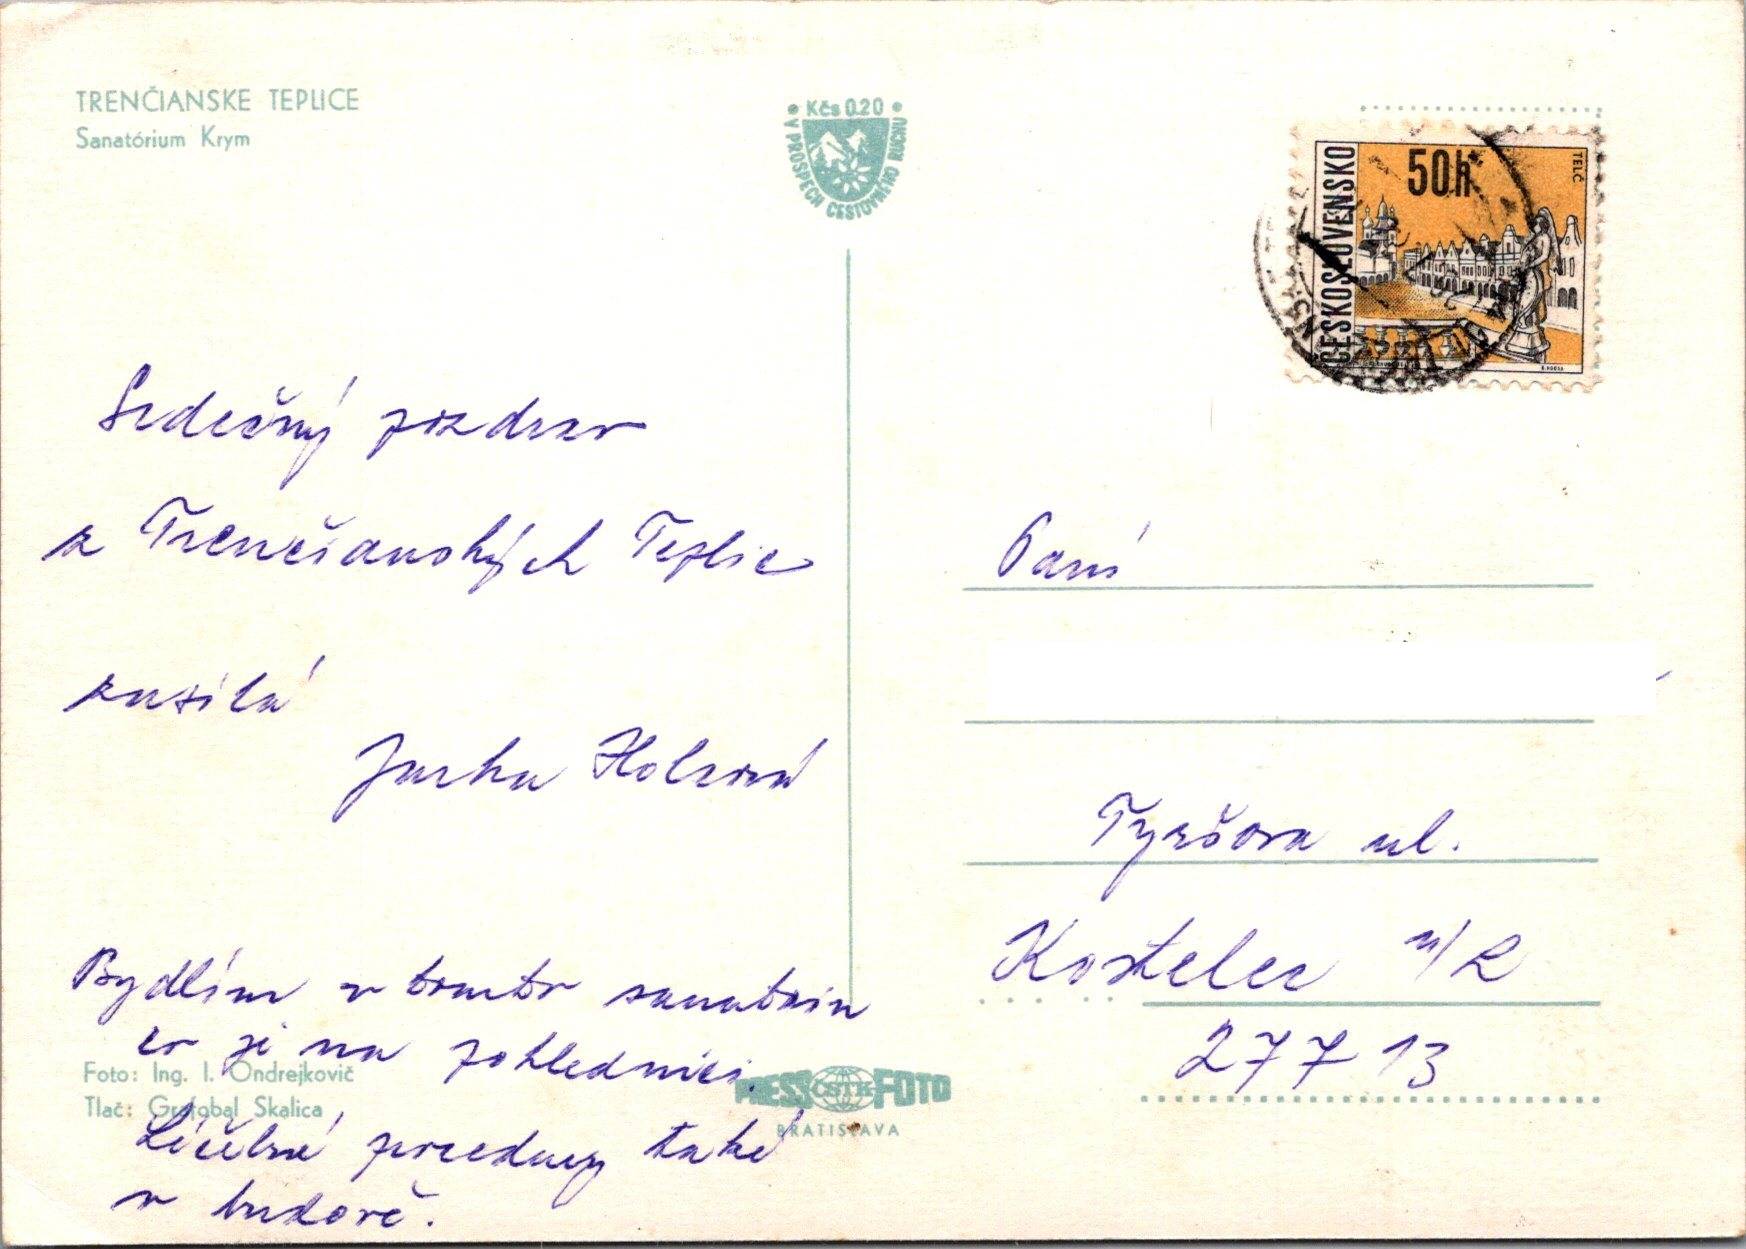 TRENČIANSKE TEPLICE
Sanatórium Krym
Kčs 0.20
V PROSPECH CESTOVNÉHO RUCHU
ČESKOSLOVENSKO
50h
TELČ
Srdečný pozdrav
z Trenčianských Teplic
zasílá
Jarka Holcová
Bydlím v tomto sanatoriu
co je na pohlednici.
Léčebné procedury také
v budově.
Foto: Ing. I. Ondrejkovič
Tlač: Grafobal Skalica
PRESS ČSTK FOTO
BRATISLAVA
Paní
Tyršova ul.
Kostelec n/L
277 13